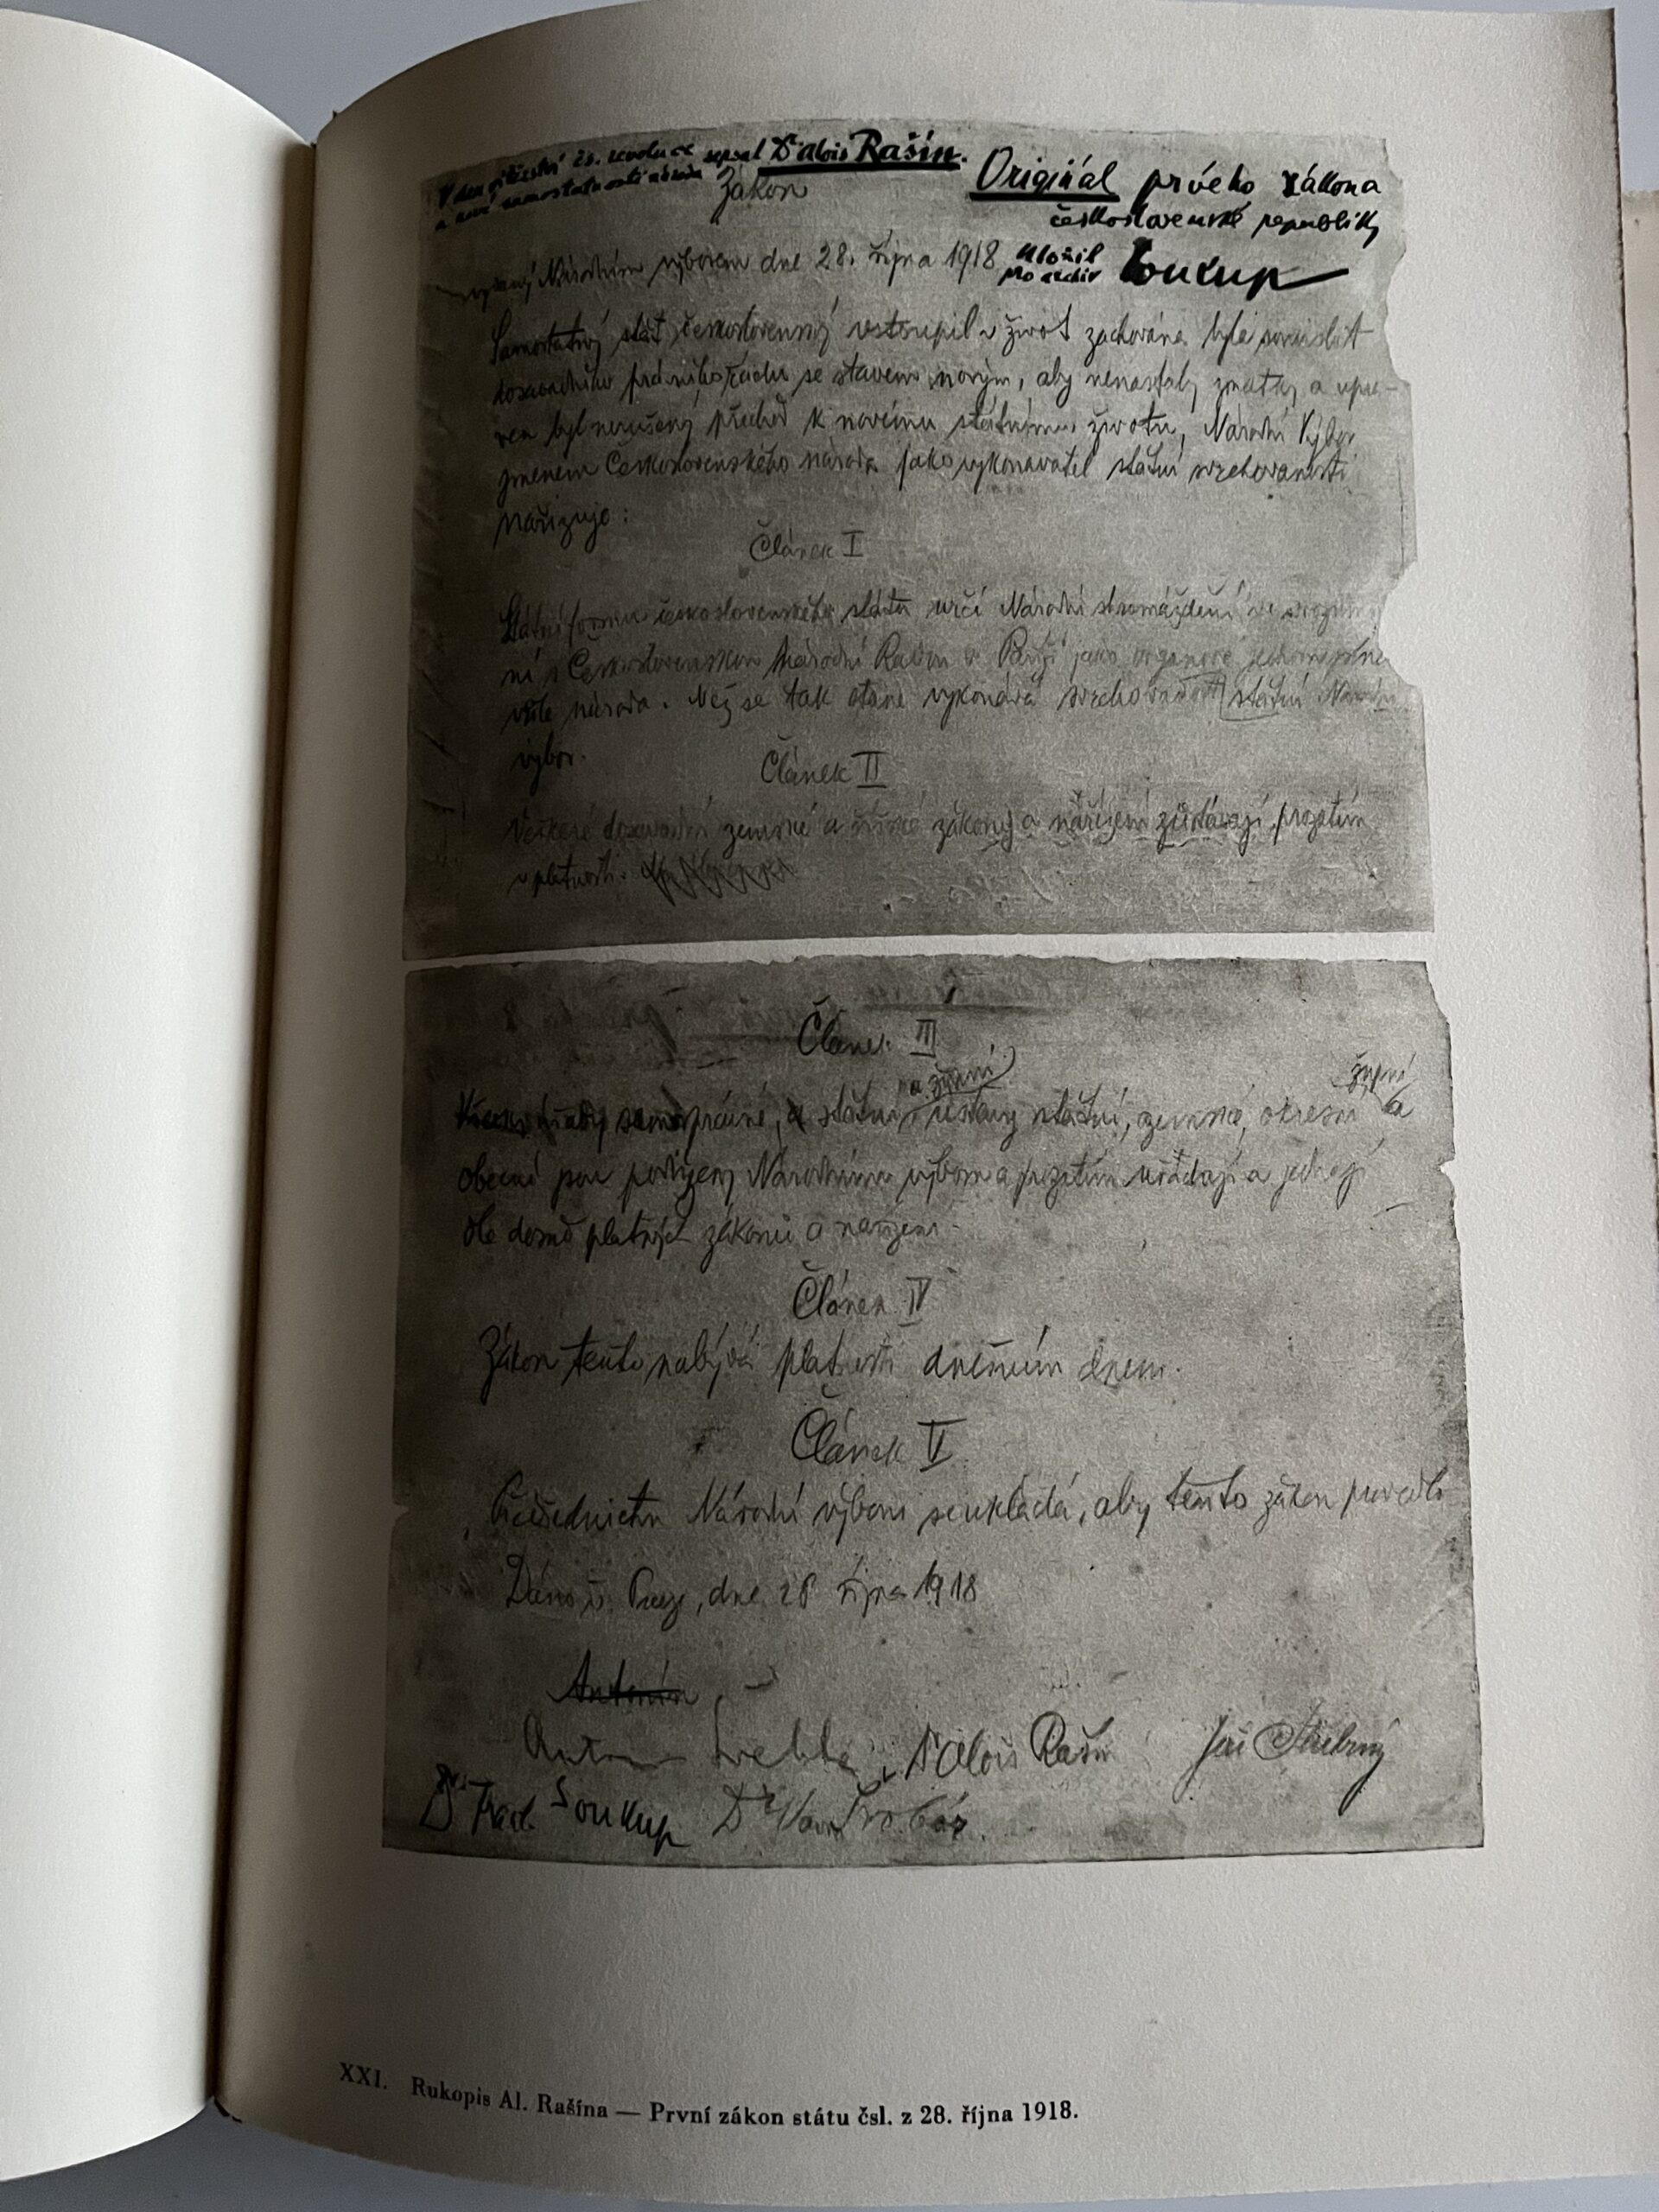 V den vítězství čs. revoluce sepsal Dr Alois Rašín.
a nové samostatnosti národa
Originál prvého zákona
československé republiky
uložil
pro archiv Soukup
Zákon
vydaný Národním výborem dne 28. října 1918
Samostatný stát československý vstoupil v život zachována byla souvislost
dosavadního právního řádu se stavem novým, aby nenastaly zmatky a upra-
ven byl nerušený přechod k novému státnímu životu, Národní Výbor
jmenem Československého národa jako vykonavatel státní svrchovanosti
nařizuje:
Článek I
Státní formu československého státu určí Národní shromáždění ve srozumě
ní s Československou Národní Radou v Paříži jako orgánové jednomyslné
vůle národa. Než se tak stane vykonává svrchovanost státní Národní
výbor.
Článek II
Veškeré dosavadní zemské a říšské zákony a nařízení zůstávají prozatím
v platnosti.
Článek III
a župní
župní
Všecky úřady samosprávné, a státní, ústavy státní, zemské, okresní a
obecní jsou podřízeny Národnímu výboru a prozatím úřadují a jednají
dle dosud platných zákonů a nařízení.
Článek IV
Zákon tento nabývá platnosti dnešním dnem.
Článek V
Předsednictvu Národní výboru se ukládá, aby tento zákon provedlo
Dáno v Praze, dne 28 října 1918
Antonín
Antonín Švehla Dr Alois Rašín Jiří Stříbrný
Dr Frant. Soukup Dr Vavro Šrobár.
XXI. Rukopis Al. Rašína — První zákon státu čsl. z 28. října 1918.